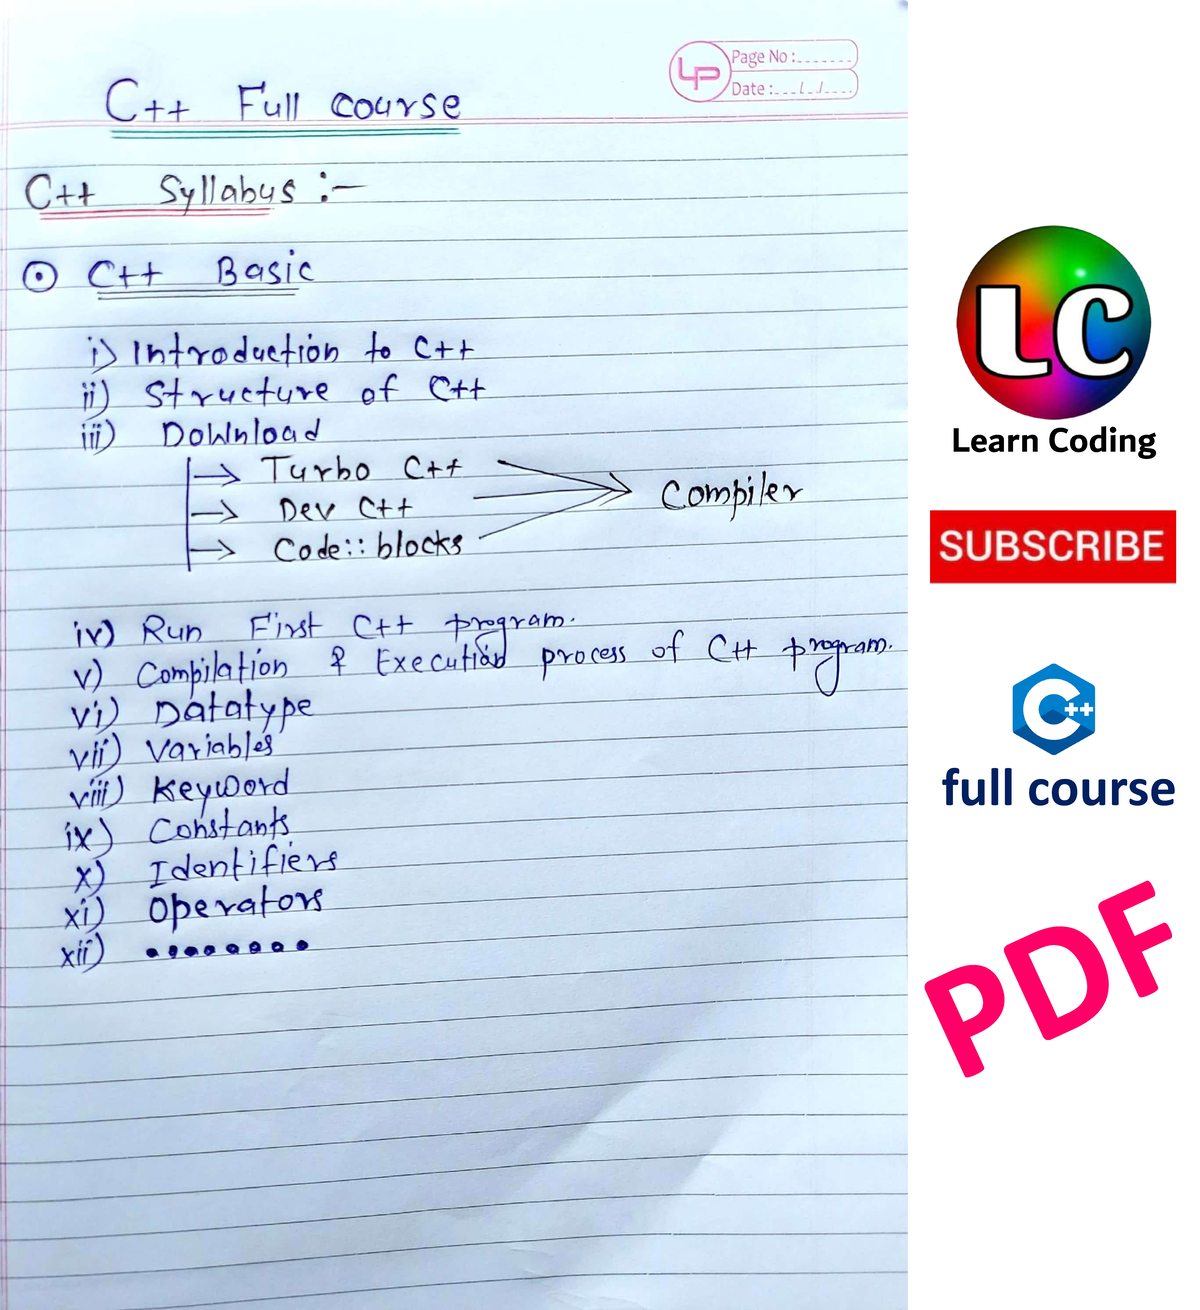 Page No :.......
Date :.../../....
C++ Full course
C++ Syllabus :-
C++ Basic
i) Introduction to C++
ii) Structure of C++
iii) Download
Turbo C++
Dev C++
Code::blocks
Compiler
iv) Run First C++ program.
v) Compilation & Execution process of C++ program.
vi) Datatype
vii) Variables
viii) Keyword
ix) Constants
x) Identifiers
xi) Operators
xii) ........
LC
Learn Coding
SUBSCRIBE
C++
full course
PDF